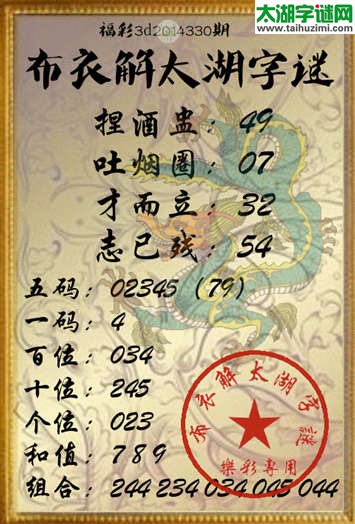 太湖字谜网
www.taihuzimi.com
福彩3d2014330期
布衣解太湖字谜
捏酒盅：49
吐烟圈：07
才而立：32
志已残：54
五码：02345（79）
一码：4
百位：034
十位：245
个位：023
和值：789
组合：244 234 034 045 044
布衣解太湖字谜
乐彩专用